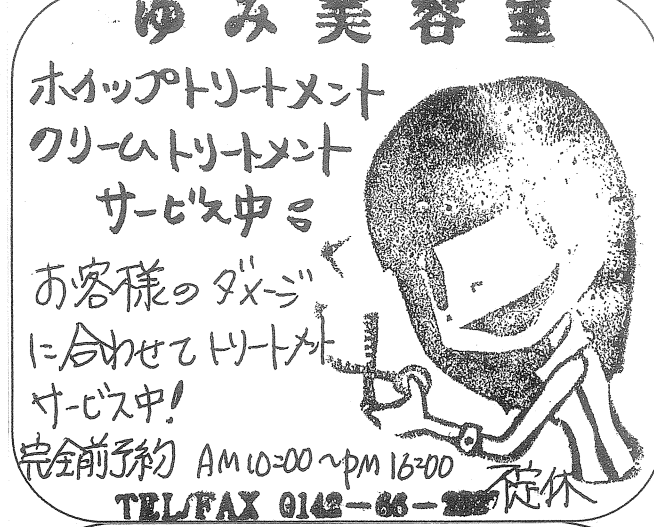 ゆみ美容室
ホイップトリートメント
クリームトリートメント
サービス中
お客様のダメージ
に合わせてトリートメント
サービス中!
完全前予約 AM10:00〜PM16:00
不定休
TEL/FAX 0142-66-